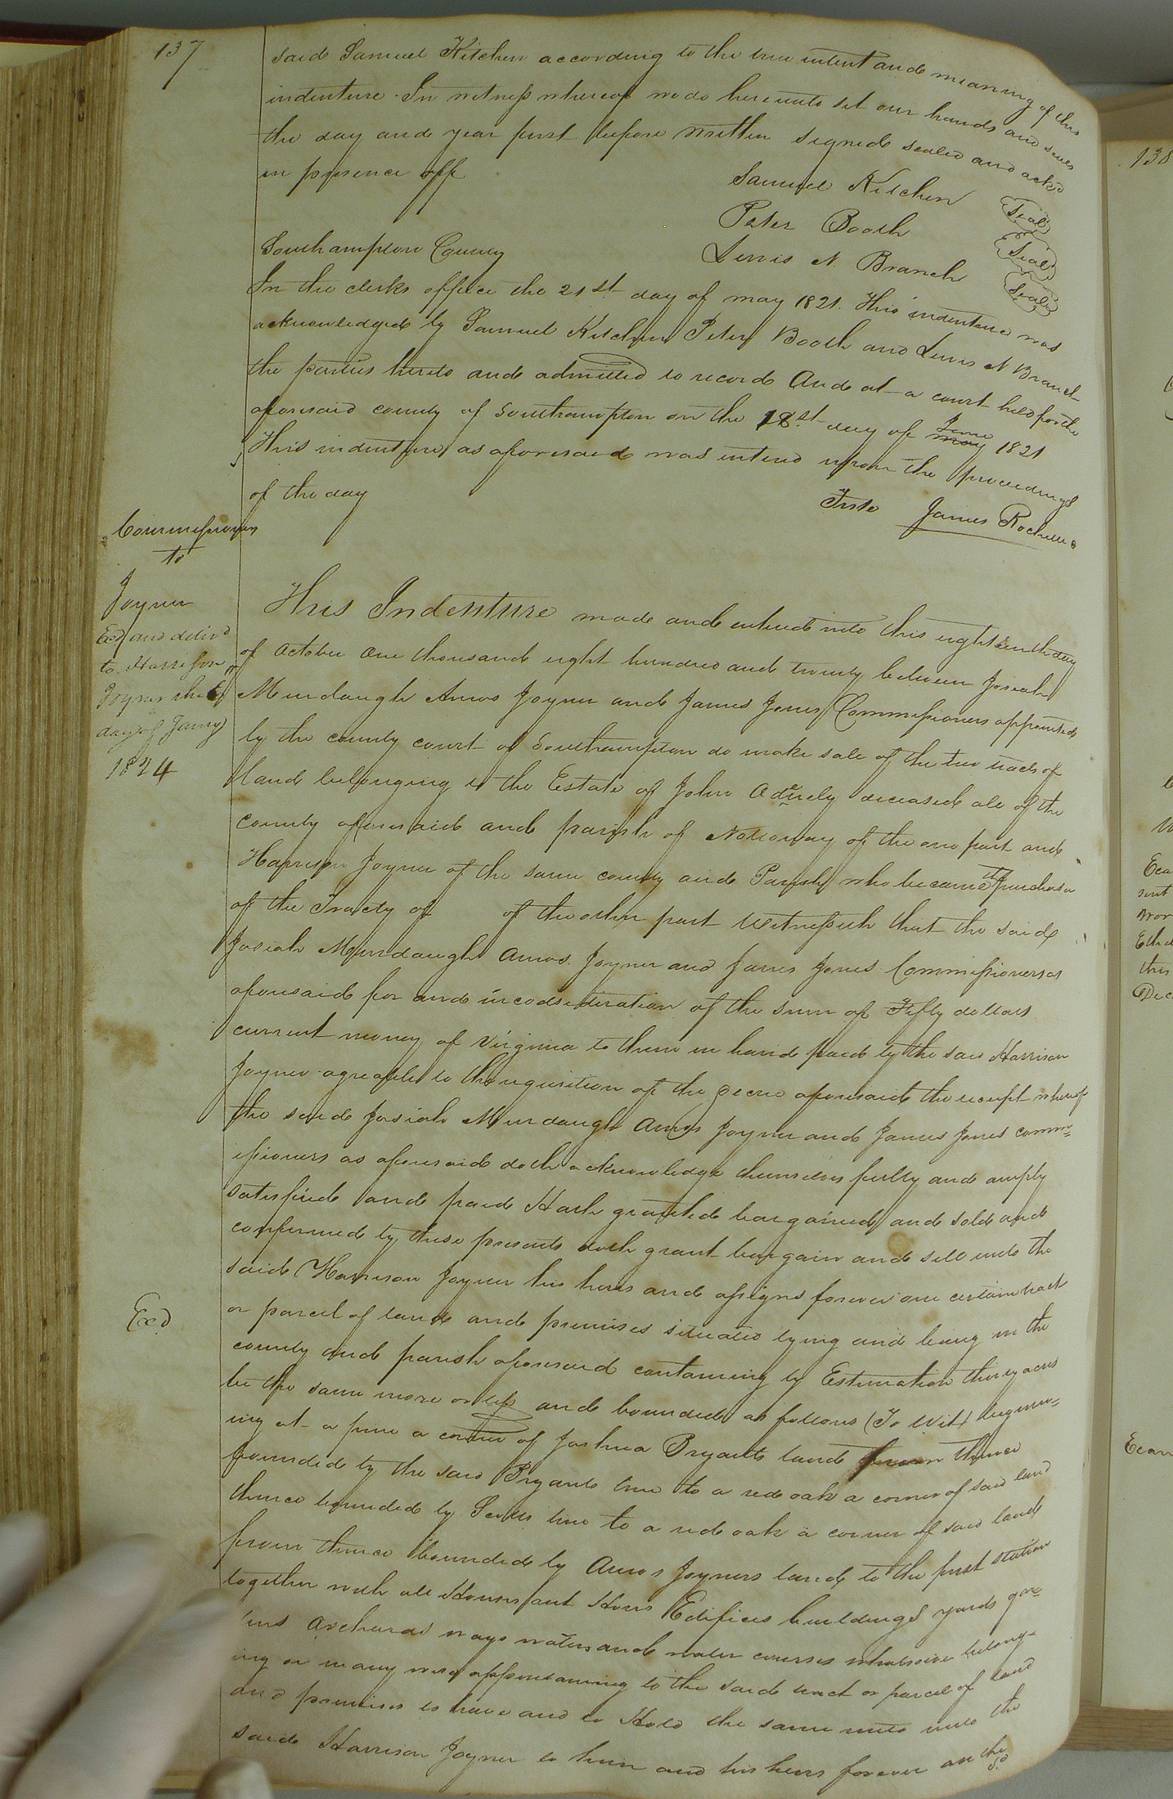 137
said Samuel Kitchen according to the true intent and meaning of this
indenture In witness whereof we do hereunto set our hands and seals
the day and year first before written signed sealed and ackd
in presence off
Samuel Kitchen Seal
Peter Booth Seal
Lewis N Branch Seal
Southampton County
In the clerks office the 21st day of may 1821. This indenture was
acknowledged by Samuel Kitchen Peter Booth and Lewis N Branch
the parties hereto and admitted to record And at a court held for the
aforesaid county of Southampton on the 18st day of may June 1821
This indenture as aforesaid was enterd upon the proceedings
of the day
Teste James Rochelle
Commissioners
to
Joyner
Exd and delivd
to Harrison
Joyner the
day of Jany
1824
This Indenture made and entered into this eighteenth day
of October One thousand eight hundred and twenty between Josiah
Murdaugh Amos Joyner and James Jones Commissioners appointed
by the county court of Southampton do make sale of the two tracts of
land belonging to the Estate of John deceased all of the
county aforesaid and parish of Nottoway of the one part and
Harrison Joyner of the same county and Parish who became the purchaser
of the Tracty of of the other part Witnesseth that the said
Josiah Murdaugh Amos Joyner and James Jones Commissioners as
aforesaid for and in consideration of the sum of Fifty dollars
current money of Virginia to them in hand paid by the said Harrison
Joyner agreable to the requisition of the decree aforesaid the receipt whereof
the said Josiah Murdaugh Amos Joyner and James Jones comm=
issioners as aforesaid doth acknowledge themselves fully and amply
satisfied and paid Hath granted bargained and sold and
confirmed by these presents doth grant bargain and sell unto the
said Harrison Joyner his heirs and assigns forever one certain tract
or parcel of land and premises situate lying and being in the
Exd
county and parish aforesaid containing by Estimation thirty acres
be the same more or less and bounded as follows (To Wit) beginn=
ing at a pine a corner of Joshua Bryants land thence
bounded by the said Bryants line to a red oak a corner of said land
thence bounded by Scotts line to a red oak a corner of said land
from thence bounded by Amos Joyners land to the first station
together with all Houses out Houses Edifices buildings yards gar=
dens Orchards ways waters and water courses whatsoever belong=
ing or in any wise appertaining to the said tract or parcel of land
and premises to have and to Hold the same unto the
said Harrison Joyner to him and his heirs forever and the
sd
138